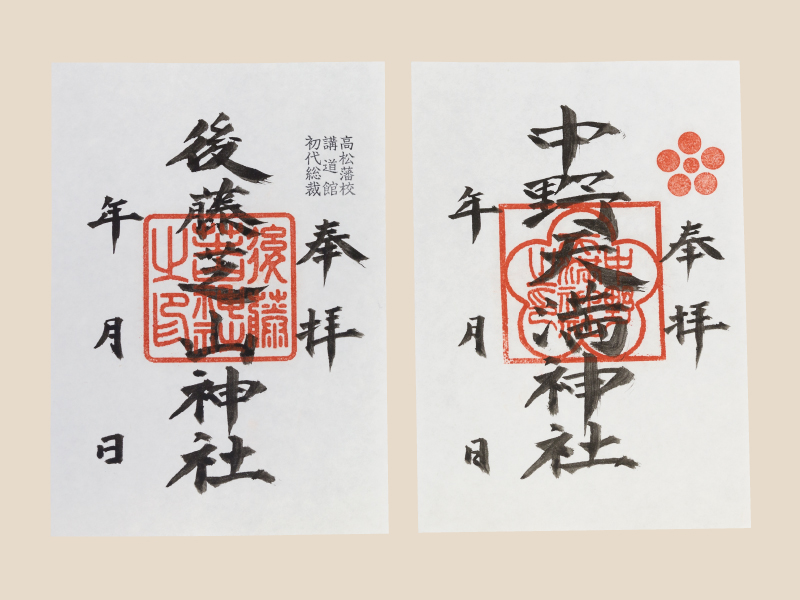 高松藩校
講道館
初代総裁
奉拝
後藤芝山神社
年 月 日
後藤
芝山神社
之印
奉拝
中野天満神社
年 月 日